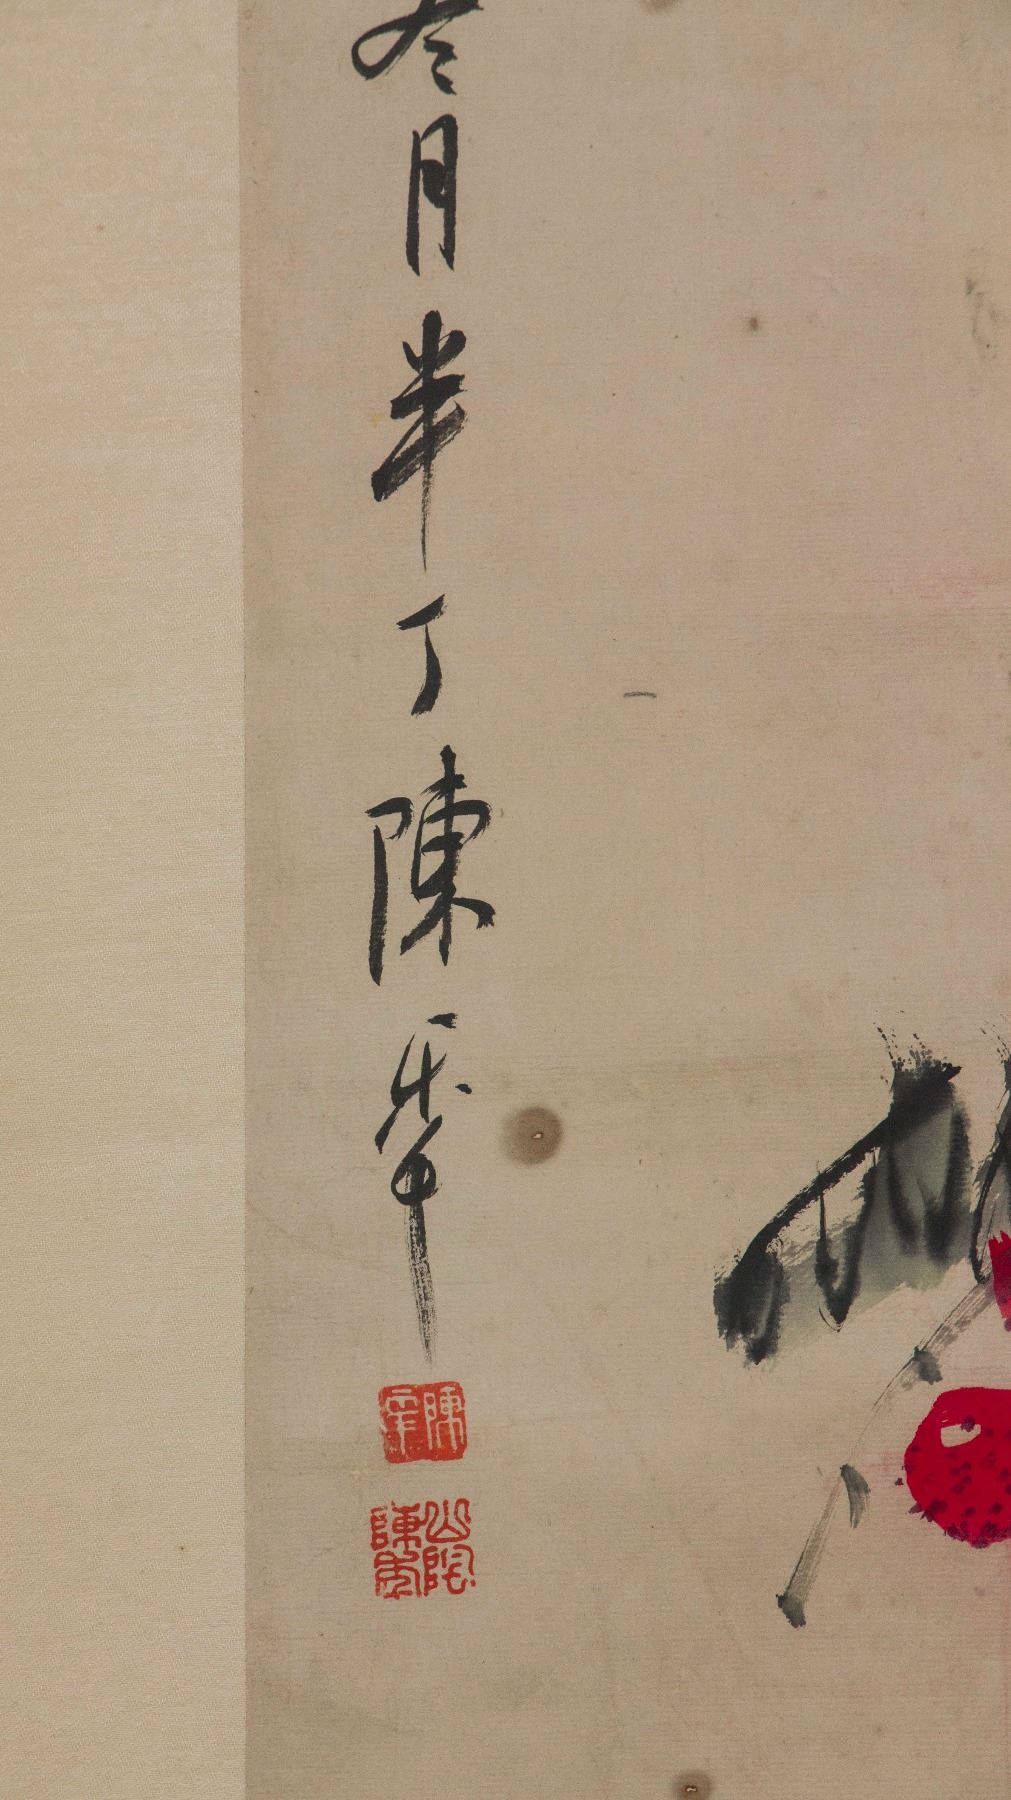 冬月半丁陳年
陳年
山陰陳年